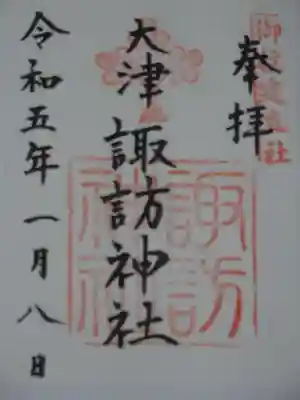 奉拝
大津諏訪神社
令和五年一月八日
諏訪
神社